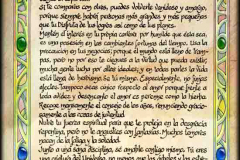 si te comparas con otros, puedes volverte vanidoso y amargo,
porque siempre habrá personas más grandes y más pequeñas
que tú. Disfruta de tus logros así como de tus planes.
Mantén el interés en tu propia carrera por humilde que ésta sea,
es una posesión en las cambiantes fortunas del tiempo. Usa de
la precaución en tus negocios, porque el mundo está lleno de tram-
pas, pero no por eso te ciegues a la virtud que pueda existir;
mucha gente lucha por altos ideales, y en todas partes la vida
está llena de heroísmo. Sé tú mismo. Especialmente, no finjas
afectos. Tampoco seas cínico respecto al amor porque frente a
toda aridez y desencanto el amor es perenne como la hierba.
Recoge mansamente el consejo de los años, renunciando graciosa-
mente a las cosas de juventud.
Nutre la fuerza espiritual para que te proteja en la desgracia
repentina, pero no te angusties con fantasías. Muchos temores
nacen de la fatiga y soledad.
Junto a una sana disciplina, sé amable contigo mismo. Tú eres